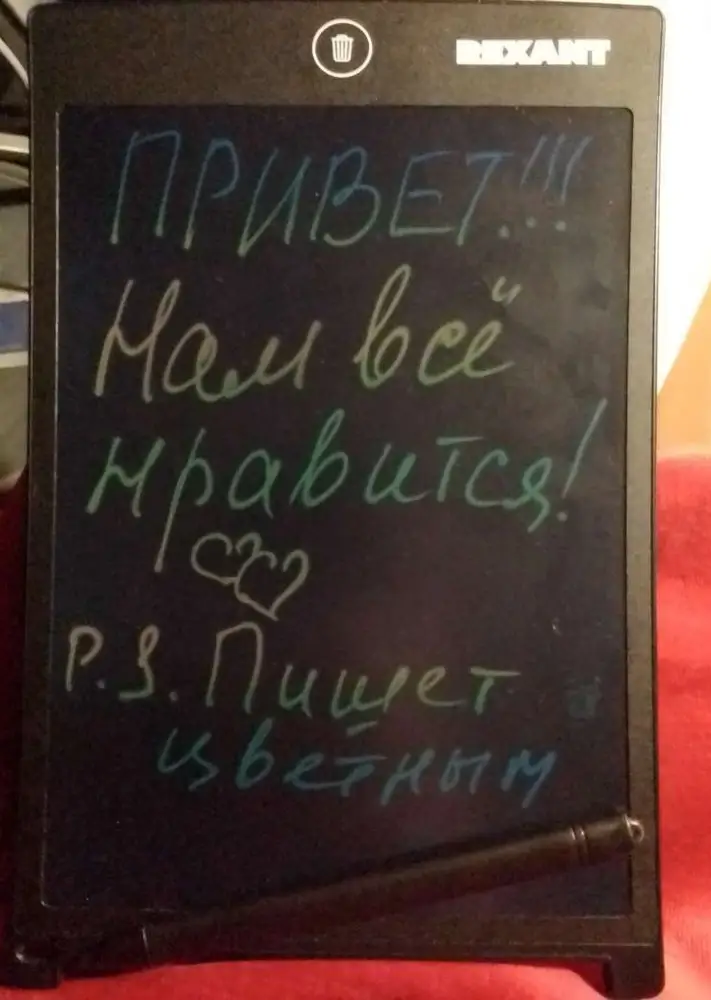 REXANT
ПРИВЕТ!!!
Нам всё
нравится!
P.S. Пишет
цветным